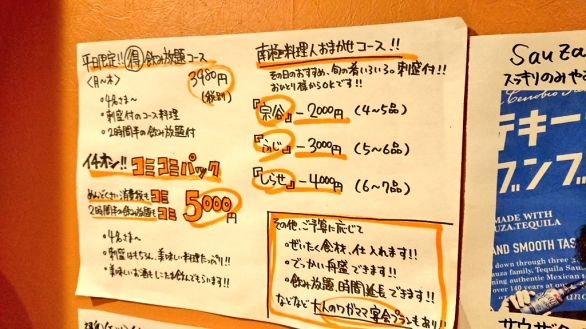 平日限定!! 得 飲み放題コース
(月〜木)
3980円
(税別)
・4名さま〜
・刺盛付のコース料理
・2時間半の飲み放題付
イチオシ!! コミコミパック
めんどくさい消費税もコミ
2時間半の飲み放題もコミ
5000円
・4名さま〜
・刺盛はもちろん、美味しい料理たっぷり!!
・美味しいお酒もじゃんじゃん飲んでもらいます!!
南極料理人おまかせコース!!
その日のおすすめ、旬の肴いろいろ。刺盛付!!
おひとり様からokです!!
『宗谷』- 2000円 (4〜5品)
『ふじ』- 3000円 (5〜6品)
『しらせ』- 4000円 (6〜7品)
その他、ご予算に応じて
・ぜいたく食材、仕入れます!!
・でっかい舟盛できます!!
・飲み放題、時間延長できます!!
などなど大人のワガママ宴会プランもあり!!
Sauza
スッキリのみや
テキー
ブンブ
MADE WITH
SAUZA TEQUILA
AND SMOOTH TAS
サウザ